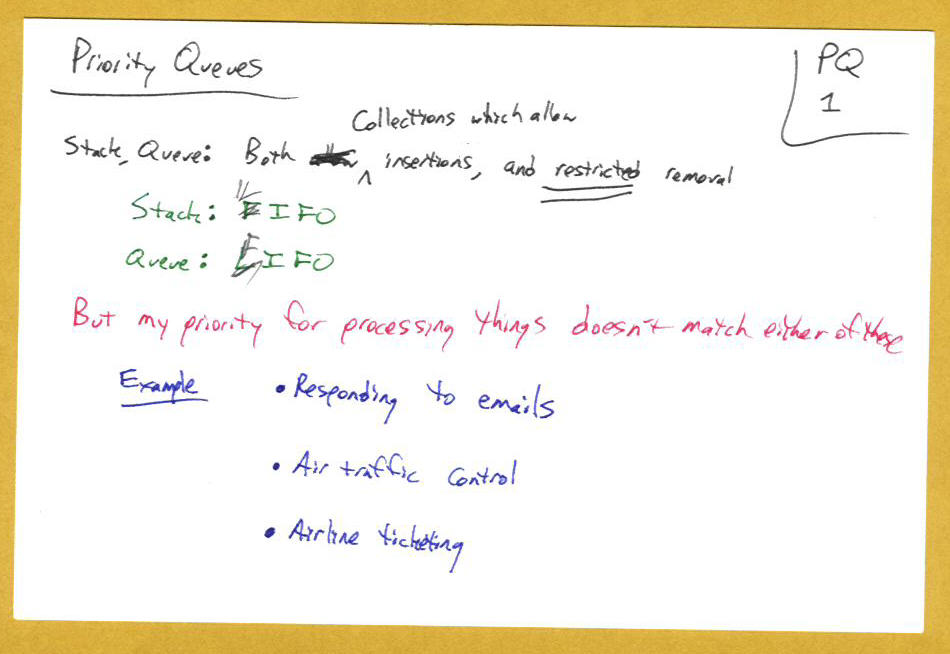 Priority Queues
PQ
1
Collections which allow
Stack, Queue: Both ^ insertions, and restricted removal
Stack: LIFO
Queue: FIFO
But my priority for processing things doesn't match either of these
Example • Responding to emails
• Air traffic control
• Airline ticketing